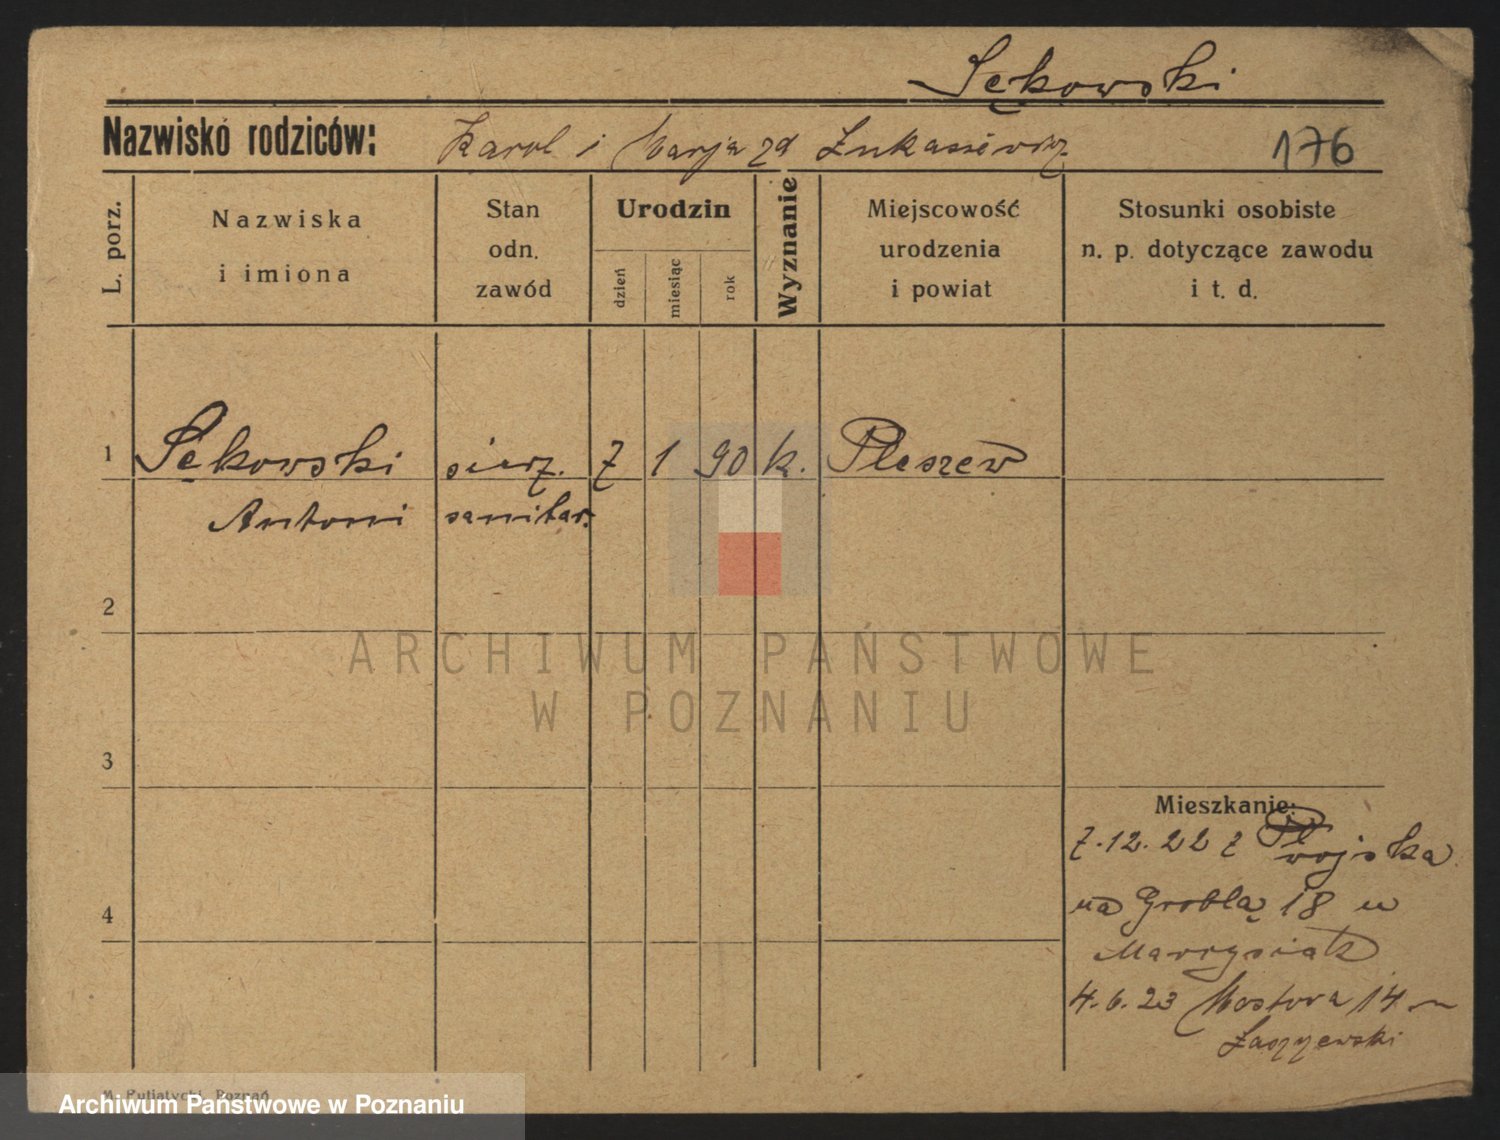 Sękowski
Nazwisko rodziców: Karol i Marja zd Łukasiewicz
176
L. porz.
Nazwiska
i imiona
Stan
odn.
zawód
Urodzin
dzień
miesiąc
rok
Wyznanie
Miejscowość
urodzenia
i powiat
Stosunki osobiste
n. p. dotyczące zawodu
i t. d.
1 Sękowski sierz. 7 1 90 k. Pleszew
Antoni sanitar.
2
ARCHIWUM PAŃSTWOWE
W POZNANIU
3
Mieszkanie:
7.12.22 z wojska
4
na Groblą 18 u
Marcysiak
4.6.23 Mostowa 14 u
M. Putiatycki, Poznań
Archiwum Państwowe w Poznaniu